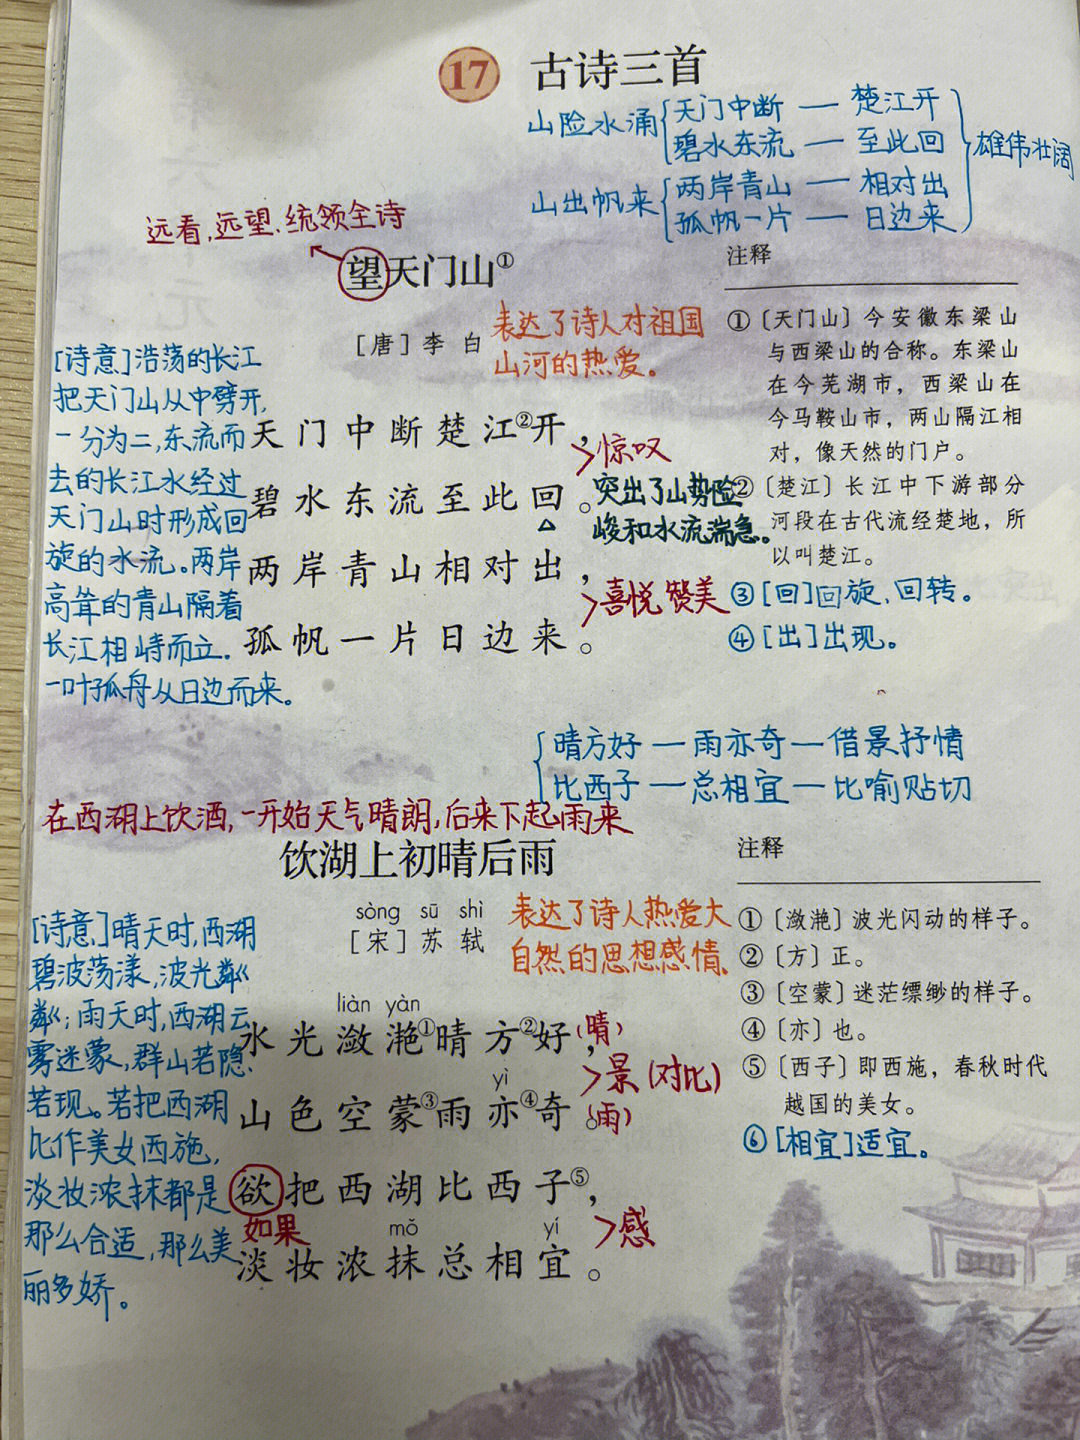 17 古诗三首
山险水涌{天门中断 — 楚江开
碧水东流 — 至此回
山出帆来{两岸青山 — 相对出
孤帆一片 — 日边来
}雄伟壮阔
远看,远望.统领全诗
望天门山①
[唐] 李 白
表达了诗人对祖国
山河的热爱。
[诗意]浩荡的长江
把天门山从中劈开,
一分为二,东流而
去的长江水经过
天门山时形成回
旋的水流。两岸
高耸的青山隔着
长江相峙而立.
一叶孤舟从日边而来。
天门中断楚江②开,
碧水东流至此回。
两岸青山相对出,
孤帆一片日边来。
>惊叹
突出了山势险
峻和水流湍急。
>喜悦 赞美
注释
①〔天门山〕今安徽东梁山
与西梁山的合称。东梁山
在今芜湖市，西梁山在
今马鞍山市，两山隔江相
对，像天然的门户。
②〔楚江〕长江中下游部分
河段在古代流经楚地，所
以叫楚江。
③[回]回旋、回转。
④[出]出现。
{晴方好 — 雨亦奇 — 借景抒情
比西子 — 总相宜 — 比喻贴切
在西湖上饮酒,一开始天气晴朗,后来下起雨来
饮湖上初晴后雨
sòng sū shì
[宋] 苏 轼
表达了诗人热爱大
自然的思想感情、
[诗意]晴天时,西湖
碧波荡漾,波光粼
粼;雨天时,西湖云
雾迷蒙,群山若隐.
若现。若把西湖
比作美女西施,
淡妆浓抹都是
那么合适,那么美
丽多娇。
liàn yàn
水光潋滟①晴方②好,
(晴)
>景(对比)
yì
山色空蒙③雨亦④奇。
(雨)
欲把西湖比西子⑤,
如果
mǒ yí
淡妆浓抹总相宜。
>感
注释
①〔潋滟〕波光闪动的样子。
②〔方〕正。
③〔空蒙〕迷茫缥缈的样子。
④〔亦〕也。
⑤〔西子〕即西施，春秋时代
越国的美女。
⑥[相宜]适宜。